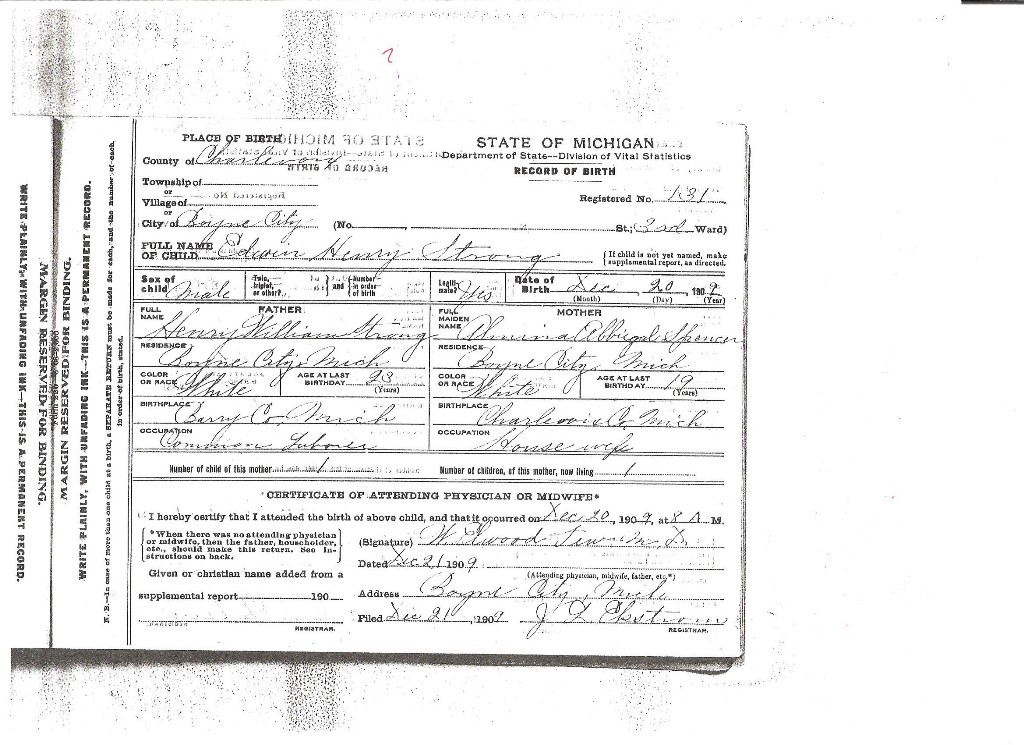 ?
PLACE OF BIRTH
STATE OF MICHIGAN
County of Charlevoix
Department of State--Division of Vital Statistics
RECORD OF BIRTH
Township of
or
Village of
Registered No. 131
or
City of Boyne City (No. St.; 3rd Ward)
FULL NAME OF CHILD Edwin Henry Strong
{ If child is not yet named, make supplemental report, as directed.
Sex of child Male Twin, triplet, or other? and { Number in order of birth Legitimate? Yes Date of Birth Dec 20, 1909
(Month) (Day) (Year)
FATHER
FULL NAME Henry William Strong
RESIDENCE Boyne City, Mich
COLOR OR RACE White AGE AT LAST BIRTHDAY 23 (Years)
BIRTHPLACE Barry Co. Mich
OCCUPATION Common Laborer
MOTHER
FULL MAIDEN NAME Almina Abbigal Spencer
RESIDENCE Boyne City, Mich
COLOR OR RACE White AGE AT LAST BIRTHDAY 19 (Years)
BIRTHPLACE Charlevoix Co. Mich
OCCUPATION House wife
Number of child of this mother 1 Number of children, of this mother, now living 1
CERTIFICATE OF ATTENDING PHYSICIAN OR MIDWIFE*
I hereby certify that I attended the birth of above child, and that it occurred on Dec 20, 1909, at 8 A M.
{ *When there was no attending physician or midwife, then the father, householder, etc., should make this return. See Instructions on back. }
(Signature) W. Elwood M D.
Dated Dec 21 1909
(Attending physician, midwife, father, etc.*)
Given or christian name added from a
supplemental report 190
Address Boyne City, Mich
Filed Dec 21 1909 J L Ekstrom
REGISTRAR.
REGISTRAR.
N. B.--In case of more than one child at a birth, a SEPARATE RETURN must be made for each, and the number of each, in order of birth, stated.
WRITE PLAINLY, WITH UNFADING INK--THIS IS A PERMANENT RECORD.
MARGIN RESERVED FOR BINDING.
MARGIN RESERVED FOR BINDING.
WRITE PLAINLY, WITH UNFADING INK--THIS IS A PERMANENT RECORD.